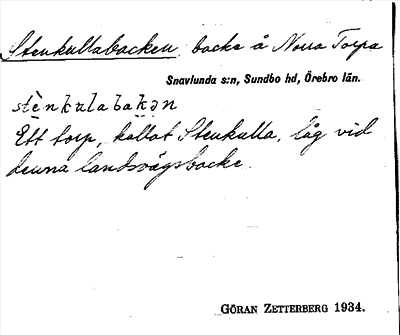 Stenkullabacken, backe å Norra Torpa
Snavlunda s:n, Sundbo hd, Örebro län.
stènkulabakən
Ett torp, kallat Stenkulla, låg vid
denna landsvägsbacke.
GÖRAN ZETTERBERG 1934.